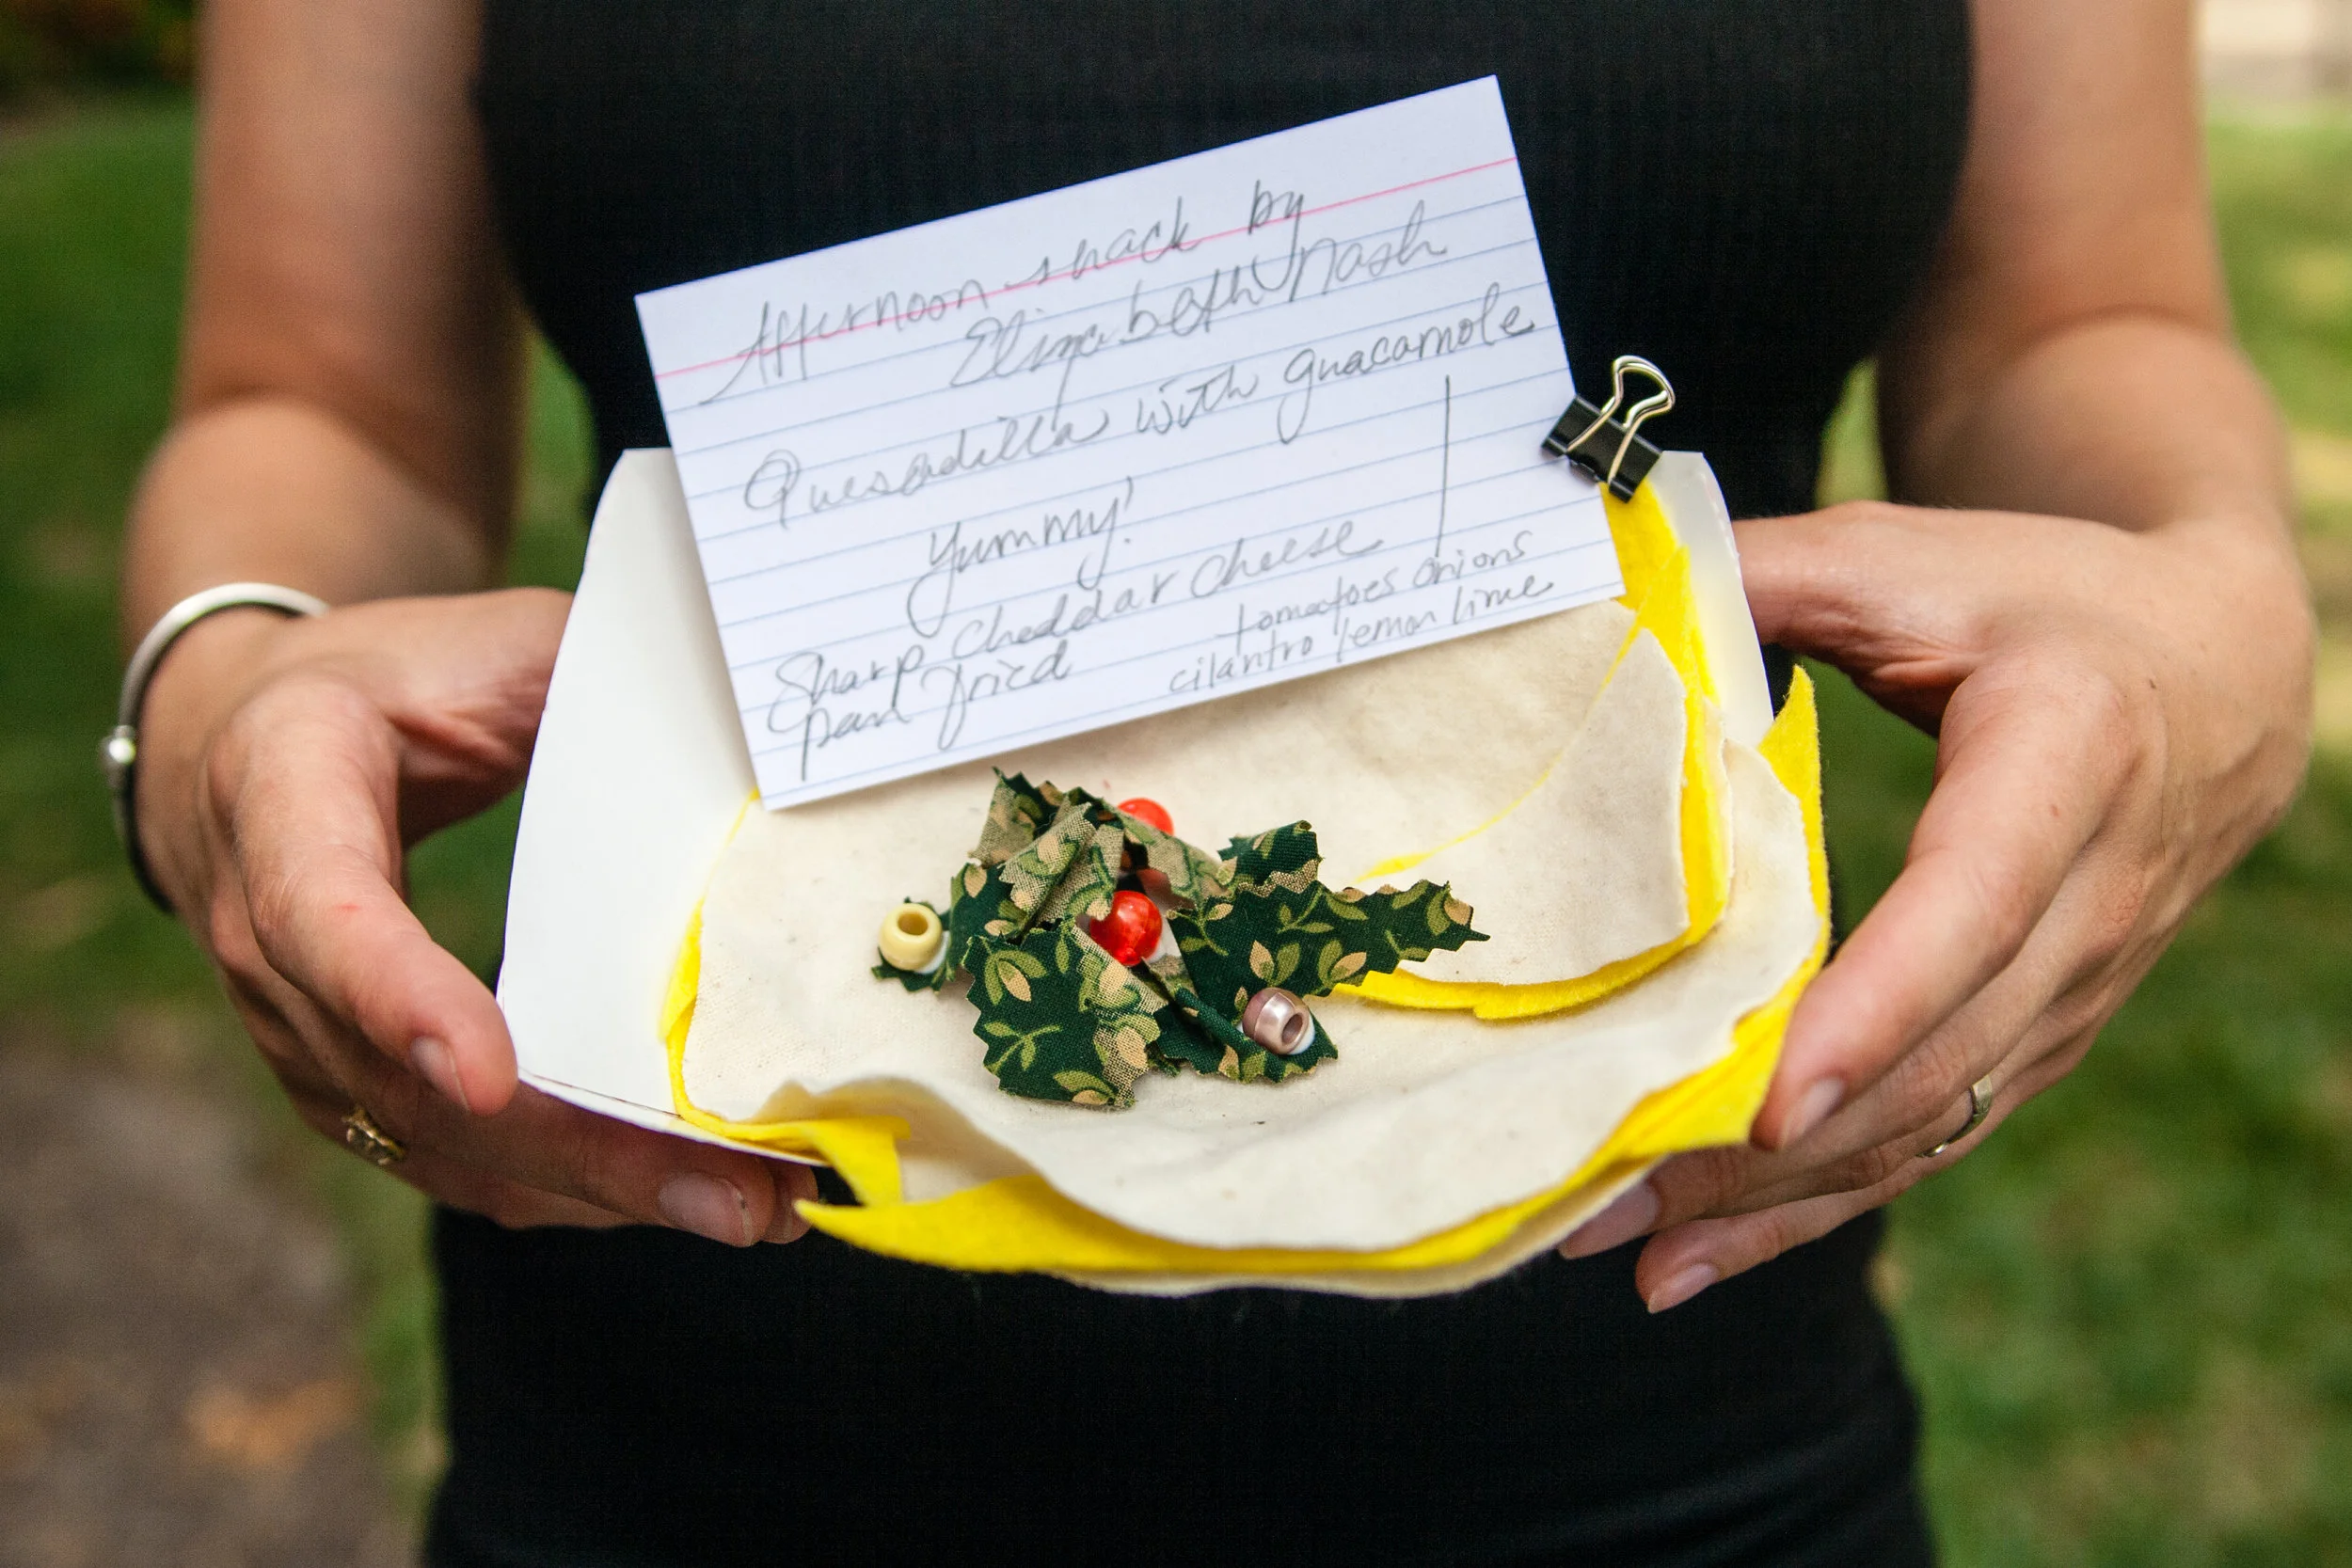 Afternoon snack by
Elizabeth Nash
Quesadilla with guacamole
Yummy!
Sharp cheddar cheese
pan fried
tomatoes onions
cilantro lemon lime